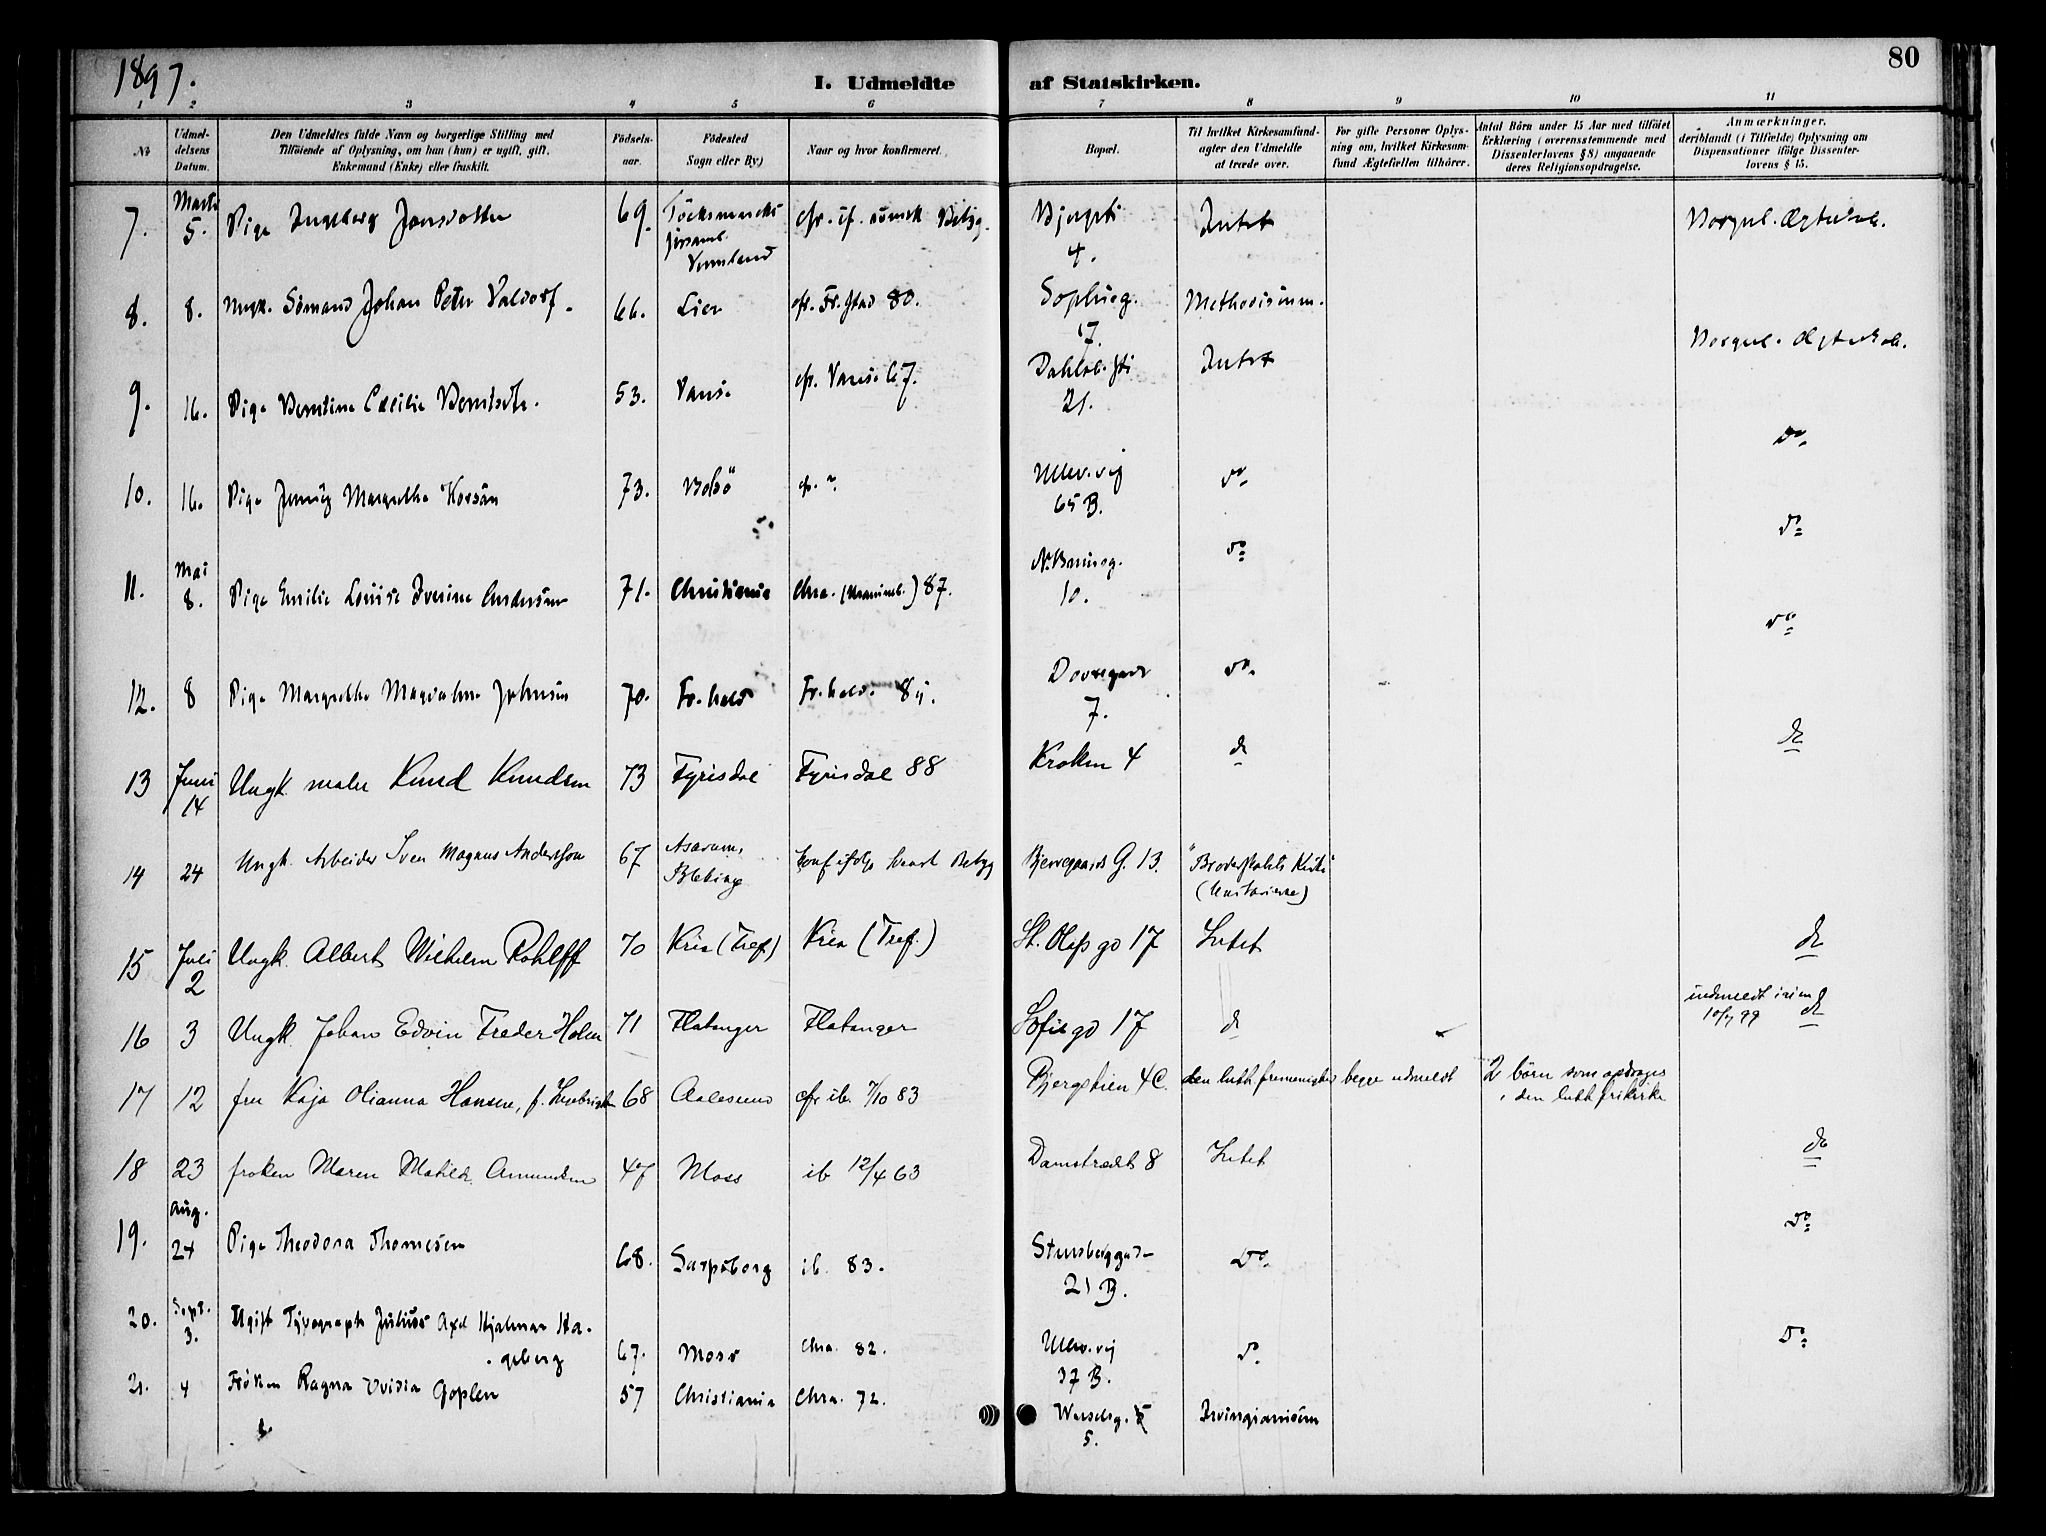 1897.
80
I. Udmeldte af Statskirken.
1 2 3 4 5 6 7 8 9 10 11
No
Udmeldelsens Datum.
Den Udmeldtes fulde Navn og borgerlige Stilling med
Tilføiende af Oplysning, om han (hun) er ugift, gift,
Enkemand (Enke) eller fraskilt.
Fødselsaar.
Fødested
Sogn eller By)
Naar og hvor konfirmeret.
Bopæl.
Til hvilket Kirkesamfund
agter den Udmeldte
at træde over.
For gifte Personer Oplysning om, hvilket Kirkesamfund Ægtefællen tilhører.
Antal Børn under 15 Aar med tilføiet
Erklæring (overensstemmende med
Dissenterlovens § 8) angaaende
deres Religionsopdragelse.
Anmærkninger,
deriblandt (i Tilfælde) Oplysning om
Dispensationer ifølge Dissenterlovens § 15.
7. Marts 5. Pige Ingeborg Jonsdotter 69. Töcksmarks Vermland cfr. if. svensk Betyg. Bjergsti 4. Intet
8. 8. Ungk. Sömand Johan Peter Valdorf. 66. Lier cfr. Fr.stad 80. Sophieg. 17. Methodismen.
9. 16. Pige Berntine Cecilie Berntsdtr. 53. Vanse cfr. Vanse 67. Dahlsb. sti 21. Intet
10. 16. Pige Jenny Margrethe 73. Bolsö cfr. ? Ullev.vej 65 B. do.
do.
11. Mai 8. Pige Emilie Louise Iverine Andersen 71. Christiania Chra. 87. N. Bruunsg. 10. do
do
12. 8 Pige Margrethe Magdalene Johnsen 70. Fr.hald Fr.hald. 85. Dovregade 7. do.
do
13 Juni 14 Ungk. maler Knud Knudsen 73 Fyrisdal Fyrisdal 88 Kroken 4 do do
14 24 Ungk. Arbeider Sven Magnus Andersson 67 Asarum, Bleking Konf ifölge Betyg Bjerregaards G. 13. "Broderskabets Kirke" (Unitarierne)
15 Juli 2 Ungk. Albert Wilhelm Rohlff 70 Kria (Tref) Kria (Tref.) St. Olafs gd 17 Intet do
16 3 Ungk. Johan Edvin Freder Holm 71 Flatanger Flatanger Sofie gd 17 do indmeldt igjen 10/7 99 do
17 12 fru Kaja Olianna Hansen, f. 68 Aalesund cfr ib. 7/10 83 Bjergstien 4C. den luth frimenighed begge udmeldt 2 börn som opdrages i den luth frikirke
18 23 froken Maren Mathilde Amundsen 47 Moss ib 12/4 63 Damstrædet 8 Intet do
19. Aug. 24 Pige Theodora Thomesen 68. Sarpsborg ib. 83. Stensberggad 21 B. do. do
20. Sept. 3. Ugift Typograph Julius Axel Hjalmar Hageberg 67. Moss Chra. 82. Ullev.vej 37 B. do. do
21. 4 Fröken Ragna Ovidia Goplen 57 Christiania Chra. 72. Wesselsg. 5. Irvingianismen